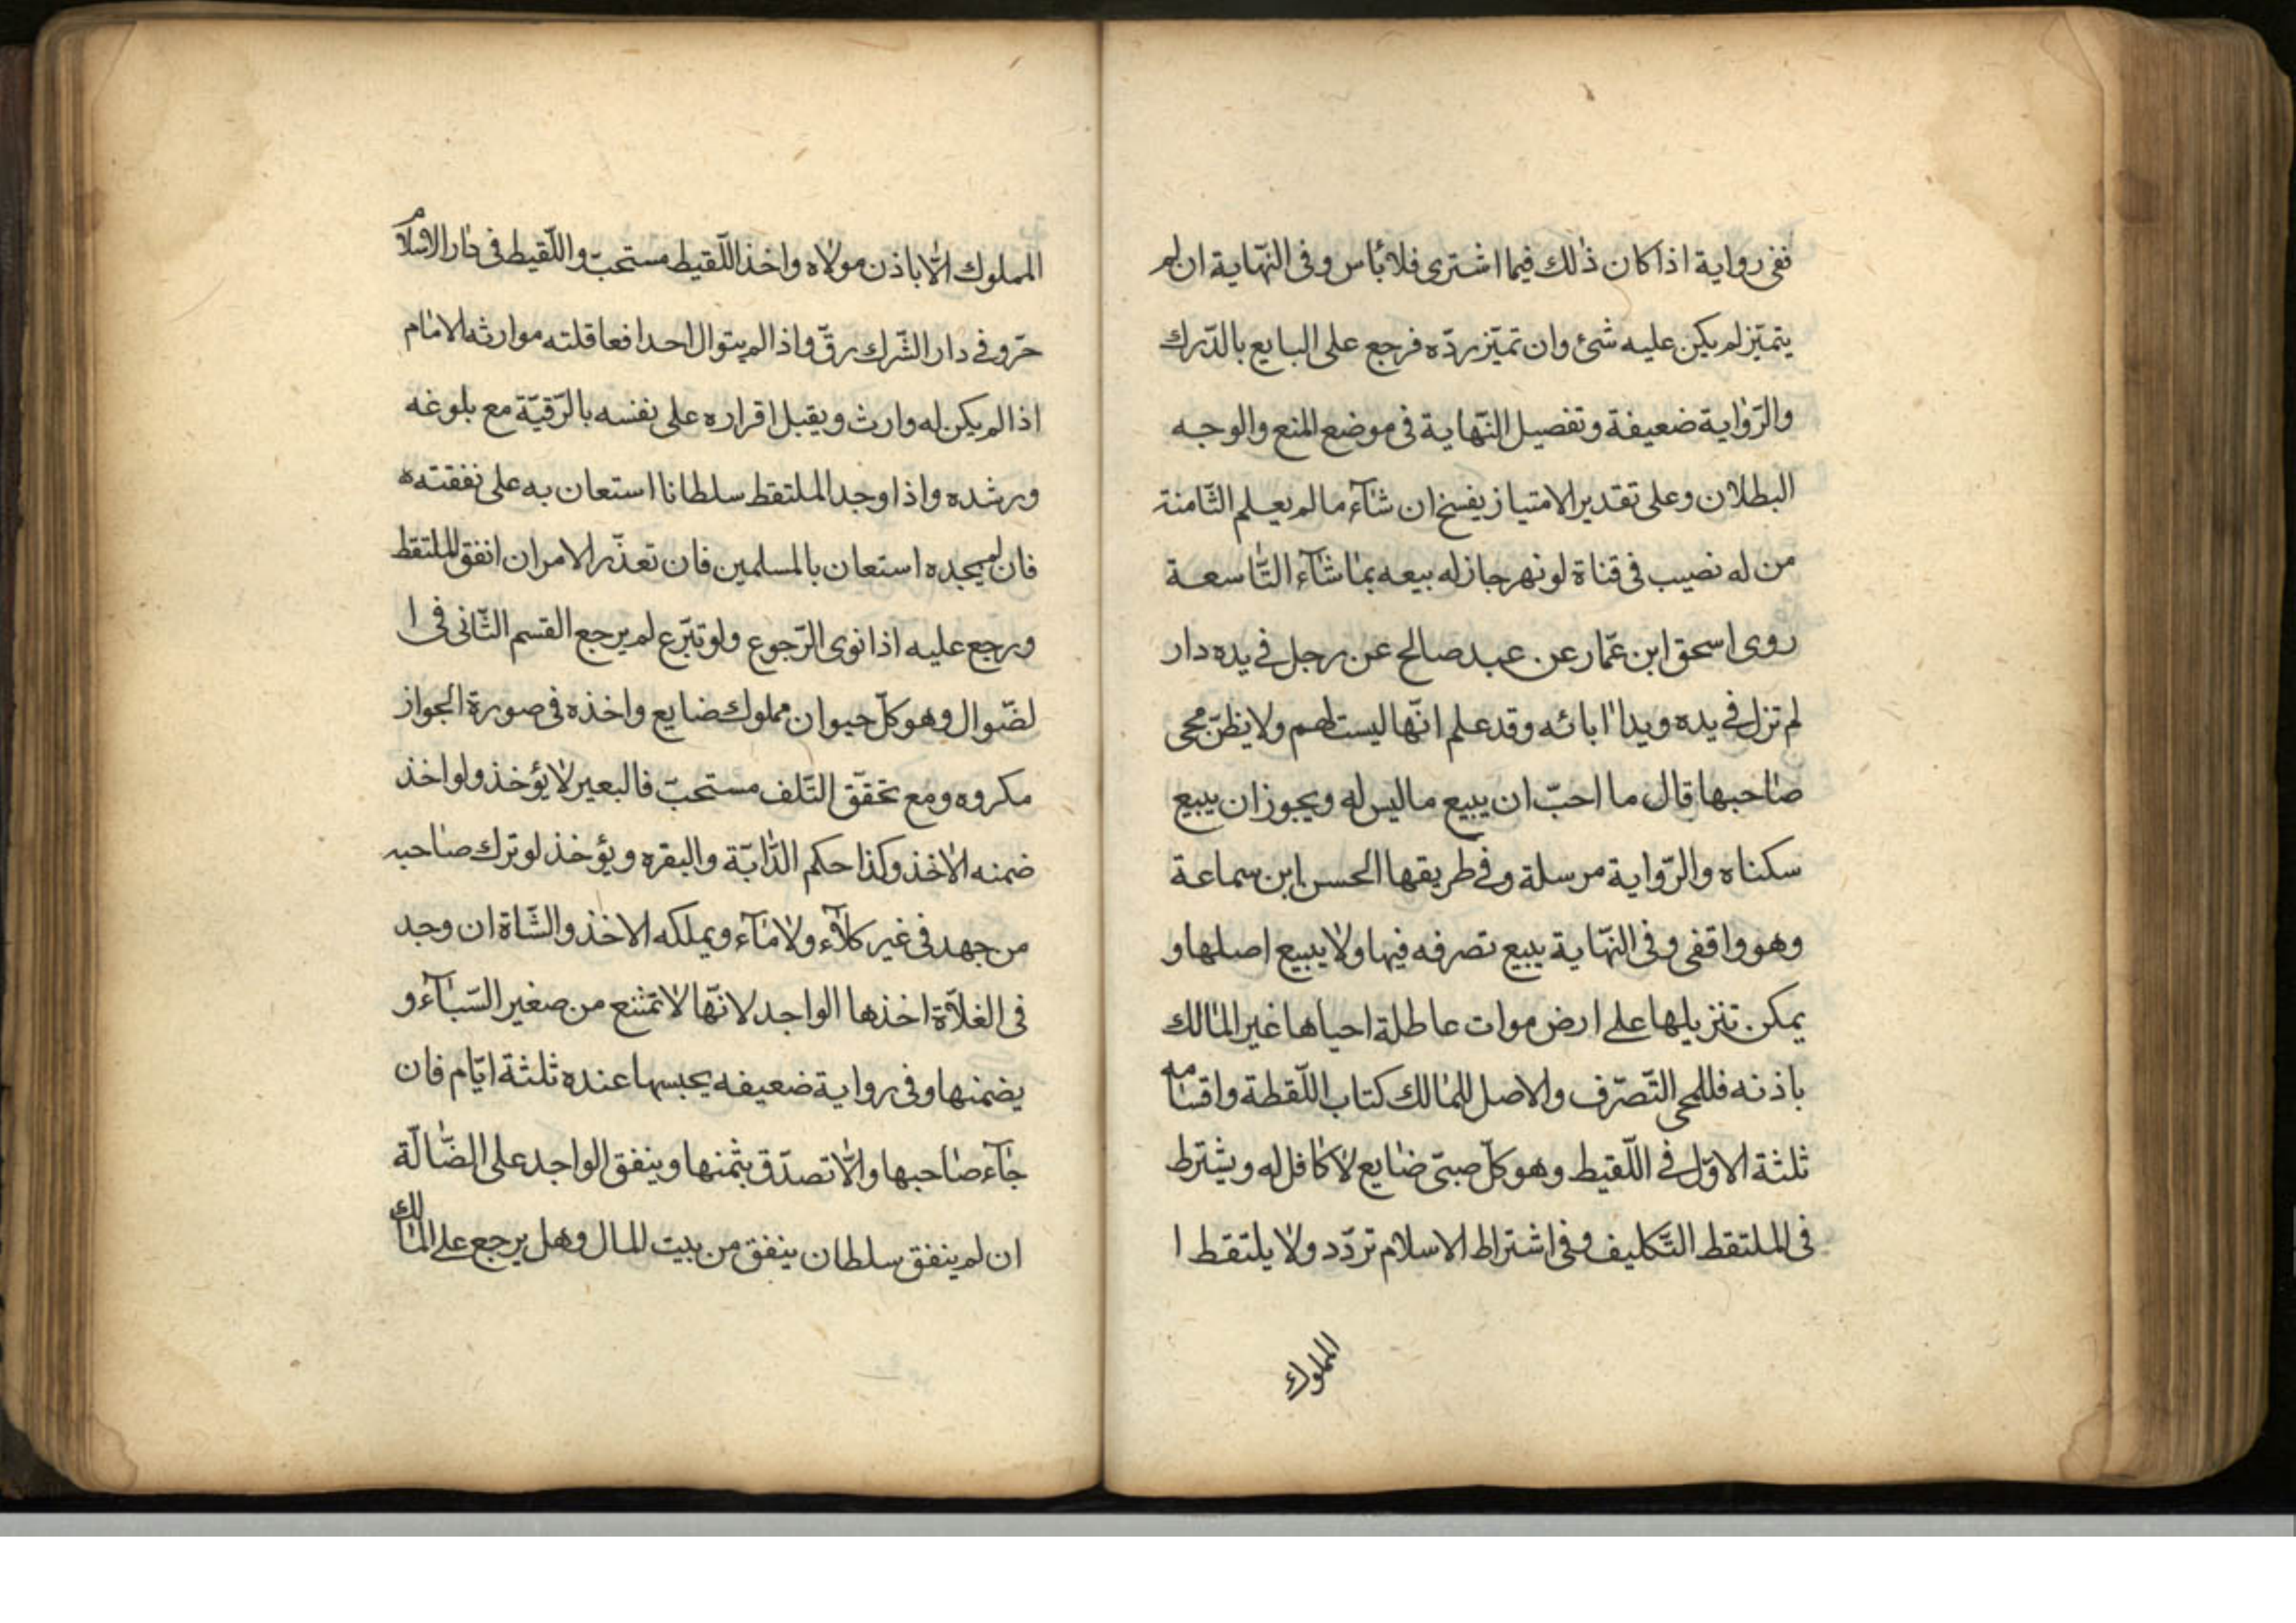 ففى رواية اذا كان ذٰلك فيما اشترى فلا بٔاس وفى النّهاية ان لم
يتميّز لم يكن عليه شئ وان تميّز ردّه فرجع على البايع بالدّرك
والرّواية ضعيفة وتفصيل النّهاية فى موضع المنع والوجه
البطلان وعلى تقدير الامتياز يفسخ ان شآء مالم يعلم الثّامنة
من له نصيب فى قناة لو نهر جاز له بيعه بما شآء التّاسعة
روى اسحق ابن عمّار عن عبد صالح عن رجل فى يده دار
لم تزل فى يده ويد اٰابائه وقد علم انّها ليست لهم ولا يظنّ مجى
صاحبها قال ما احبّ ان يبيع ماليس له ويجوز ان يبيع
سكناه والرّواية مرسلة وفى طريقها الحسن ابن سماعة
وهو واقفى وفى النّهاية يبيع تصرفه فيها ولا يبيع اصلها و
يمكن تنزيلها على ارض موات عاطلة احياها غير المالك
باذنه فللمحى التّصرّف والاصل للمالك كتاب اللّقطة واقسامه
ثلثة الاوّل فى اللّقيط وهو كلّ صبىّ ضايع لا كافل له ويشترط
فى الملتقط التّكليف وفى اشتراط الاسلام تردّد ولا يلتقط ا
المملوك
المملوك الّا باذن مولاه واخذ اللّقيط مستحبّ واللّقيط فى دار الاسلام
حرّ وفى دار الشّرك رقّ واذا لم يتوال احدا فعاقلته ووارثه الامام
اذا لم يكن له وارث ويقبل اقراره على نفسه بالرّقيّة مع بلوغه
ورشده واذا وجد الملتقط سلطانا استعان به على نفقته ه
فان لم يجده استعان بالمسلمين فان تعذّر الامر ان انفق الملتقط
ورجع عليه اذا نوى الرّجوع ولو تبرّع لم يرجع القسم الثّانى فى ا
لضّوال وهو كلّ حيوان مملوك ضايع واخذه فى صورة الجواز
مكروه ومع تحقّق التّلف مستحبّ فالبعير لا يؤخذ ولو اخذ
ضمنه الاخذ وكذا حكم الدّابّة والبقره ويؤخذ لو ترك صاحبه
من جهد فى غير كلآء ولا مآء ويملكه الاخذ والشّاة ان وجد
فى الفلاة اخذها الواجد لانّها لا تمتنع من صغير السّباآء و
يضمنها وفى رواية ضعيفه يحبسها عنده ثلثة ايّام فان
جآء صاحبها والّا تصدّق بثمنها وينفق الواجد على الضّالّة
ان لم ينفق سلطان ينفق من بيت المال وهل يرجع على المالك